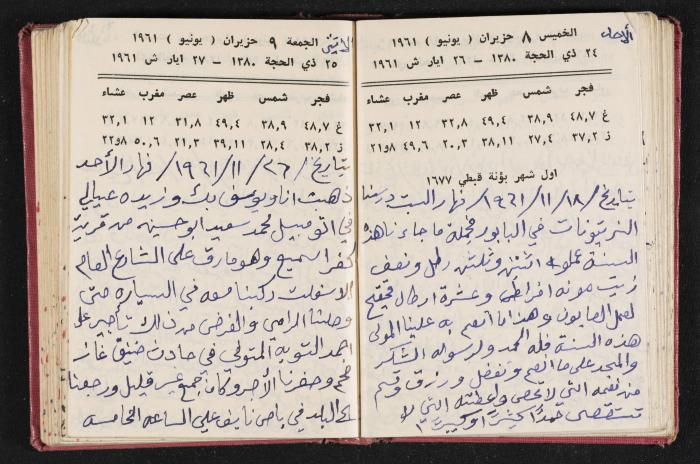 الأحد
الخميس ٨ حزيران ( يونيو ) ١٩٦١
٢٤ ذي الحجة ١٣٨٠ – ٢٦ ايار ش ١٩٦١
فجر شمس ظهر عصر مغرب عشاء
غ ٤٨,٧ ٣٨,٩ ٤٩,٤ ٣٢,٨ ١٢ ٣٢,١
ز ٣٧,٢ ٢٧,٤ ٣٨,١١ ٢٠,٣ ٤٩,٦ ٢١و٨
اول شهر بؤنة قبطي ١٦٧٧
بتاريخ / ١٨ / ١١ / ١٩٦١ / نهار السبت درسنا
الزيتونات في البابور فجملة ما جاءنا هذه
السنة عملوا اثنتين وثلثين رطل ونصف
زيت مونه افراطي وعشرة ارطال قحقيح
لعمل الصابون وهذا ما أنعم به علينا المولى
هذه السنة فلله الحمد ولرسوله الشكر
والمجد على ما انعم وتفضل ورزق وقسم
من نعمه التي لا تحصى وأعطيته التي لا
تستقصى حمداً كثيرا وكبيرا
الاثنين
الجمعة ٩ حزيران ( يونيو ) ١٩٦١
٢٥ ذي الحجة ١٣٨٠ – ٢٧ ايار ش ١٩٦١
فجر شمس ظهر عصر مغرب عشاء
غ ٤٨,٧ ٣٨,٩ ٤٩,٤ ٣١,٨ ١٢ ٣٢,١
ز ٣٨,٢ ٢٨,٤ ٣٩,١١ ٢١,٣ ٥٠,٦ ٢٢و٨
بتاريخ / ٢٦ / ١١ / ١٩٦١ / نهار الأحد
ذهبت انا ويوسف بك وزبيده عيالي
في اتومبيل محمد سعيد ابو حسين من قرية
كفراسميع وهو مارق على الشارع العام
الاسفلت ركبنا معه في السياره حتى
وصلنا الرامي والغرض من ذلك تأجير على
احمد التوبة المتولي في حادث ضيق غاز
وحضرنا الأجر وكان جميع غير قليل ورجعنا
الى البلد في باص نايف علي الساعه الخامسه